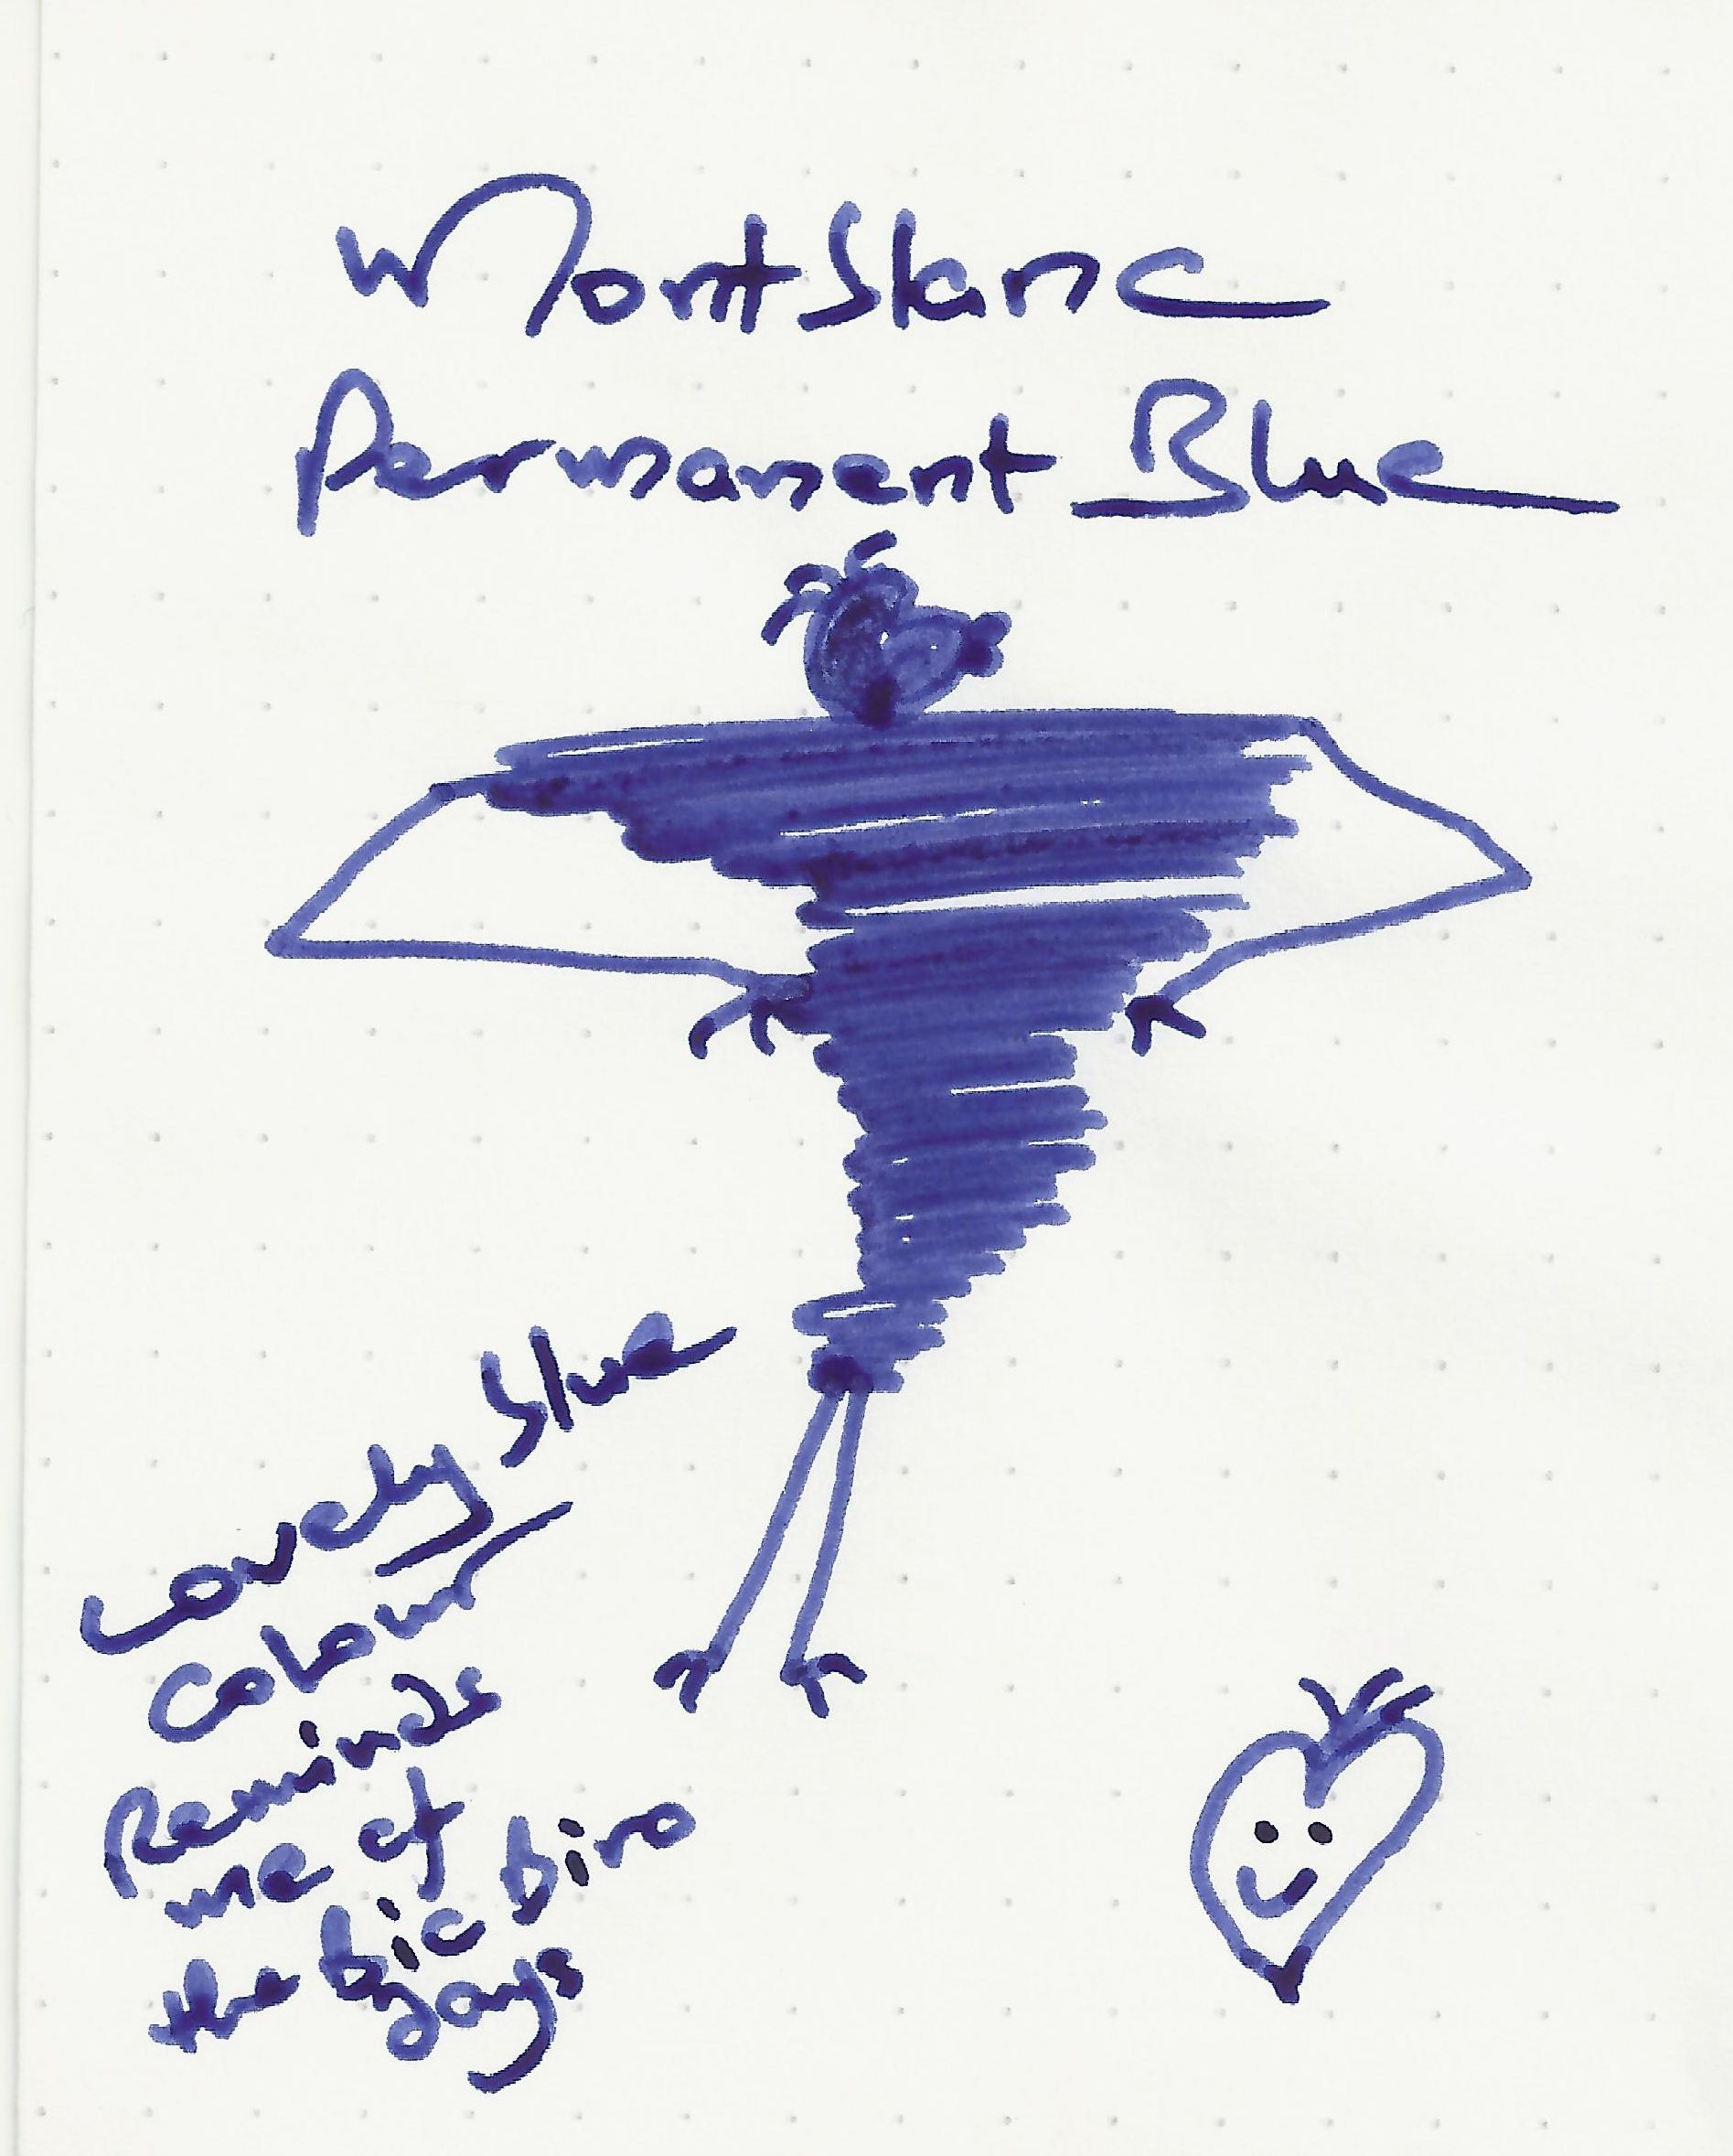 Montblanc
Permanent Blue
Lovely blue
Colour
Reminds
me of
the bic biro
days